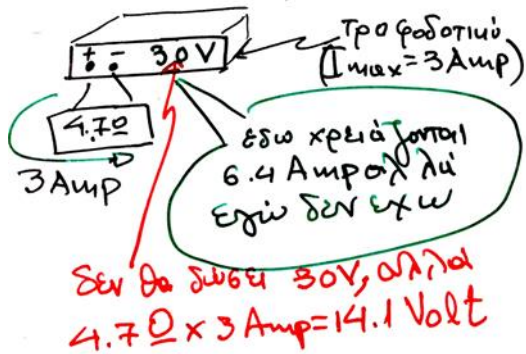 + - 30V
τροφοδοτικό
(Imax = 3 Amp)
4.7Ω
3 Amp
εδω χρειάζονται
6.4 Amp αλλά
εγώ δεν έχω
δεν θα δώσει 30V, αλλα
4.7Ω x 3 Amp = 14.1 Volt